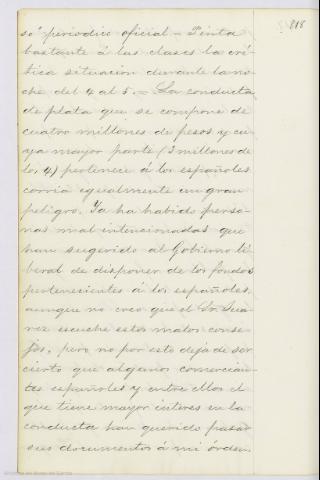 818
so" periodico oficial - Pinta
bastante á las clases la crí-
tica situacion durante la no-
che del 4 al 5. - La conducta
de plata que se compone de
cuatro millones de pesos y cu-
ya mayor parte (3 millones de
los 4) pertenece á los españoles
corria egualmente un gran
peligro. Ya ha habido perso-
nas mal intencionadas que
han sugerido al Gobierno li-
beral de disponer de los fondos
pertenecientes á los españoles,
aunque no creo que el Sr. Jua-
rez escuche estos malos conse-
jos, pero no por esto deja de ser
cierto que algunos comercian-
tes españoles y entre ellos el
que tiene mayor interes en la
conducta han querido pasar
sus documentos á mi órden